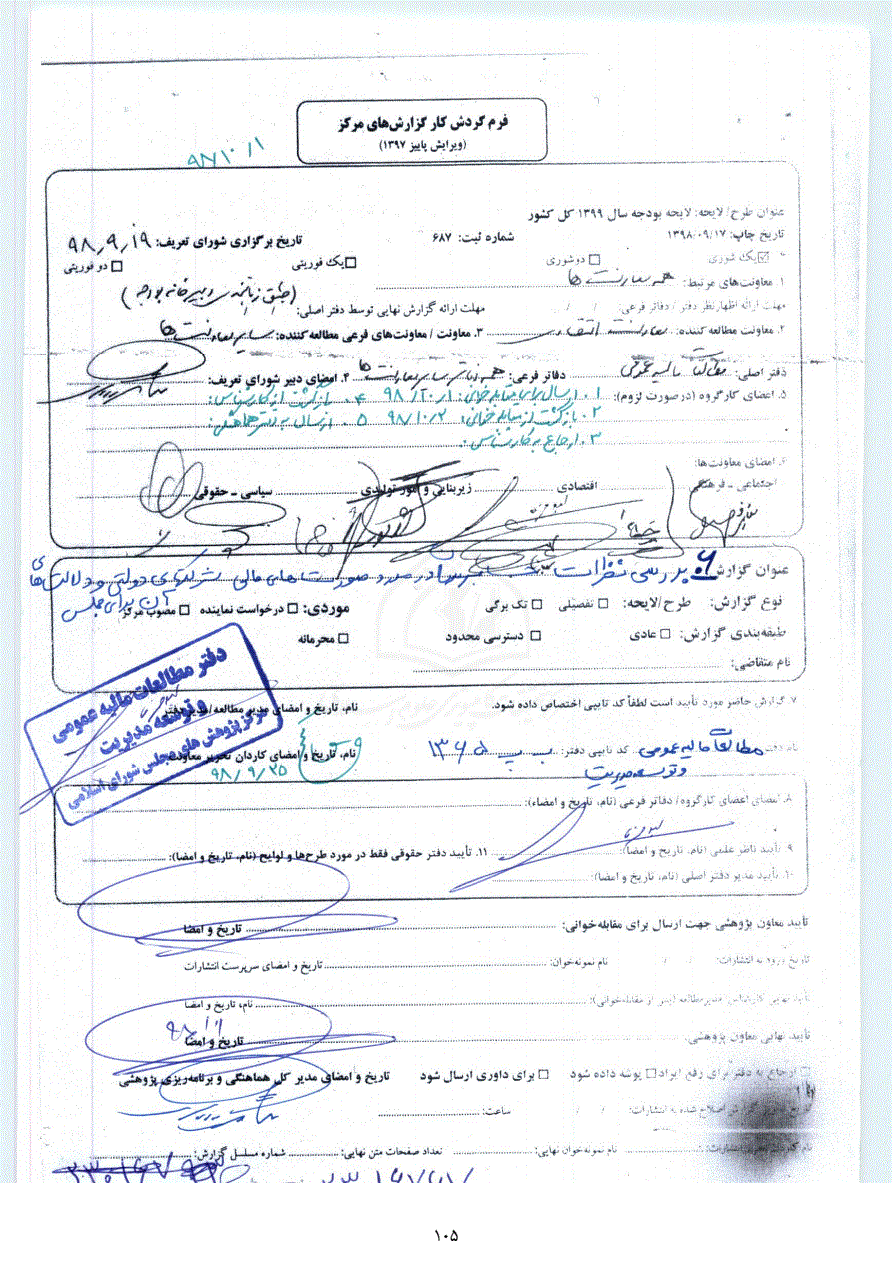 فرم گردش کار گزارش‌های مرکز
(ویرایش پاییز ۱۳۹۷)
۹۸/۱۰/۱
عنوان طرح/ لایحه: لایحه بودجه سال ۱۳۹۹ کل کشور
تاریخ چاپ: ۱۳۹۸/۰۹/۱۷ شماره ثبت: ۶۸۷ تاریخ برگزاری شورای تعریف: ۹۸,۹,۱۹
یک شوری دوشوری یک فوریتی دو فوریتی
۱. معاونت‌های مرتبط: همه معاونت ها
مهلت ارائه اظهارنظر دفتر / دفاتر فرعی: / / مهلت ارائه گزارش نهایی توسط دفتر اصلی:
۲. معاونت مطالعه کننده: معاونت اقتصادی ۳. معاونت / معاونت‌های فرعی مطالعه‌کننده: سایر معاونت ها
دفتر اصلی: مطالعات مالیه عمومی دفاتر فرعی: همه دفاتر سایر معاونت ها ۴. امضای دبیر شورای تعریف:
۵. اعضای کارگروه (درصورت لزوم): ۱. ارسال برای مقابله خوانی: ۹۸/۱۰/۱ ۴. بازگشت از کارشناس:
۲. بازگشت از مقابله خوانی: ۹۸/۱۰/۲ ۵. ارسال به دفتر هماهنگی:
۳. ارجاع به کارشناس:
۶. امضای معاونت‌ها:
اجتماعی ـ فرهنگی اقتصادی زیربنایی و امور تولیدی سیاسی ـ حقوقی
عنوان گزارش: بررسی نظرات در مورد صورت های مالی شرکتهای دولتی و دلالت های
آن برای مجلس
نوع گزارش: طرح/لایحه: تفصیلی تک برگی موردی: درخواست نماینده مصوب مرکز
طبقه‌بندی گزارش: عادی دسترسی محدود محرمانه
نام متقاضی:
دفتر مطالعات مالیه عمومی
و توسعه مدیریت
مرکز پژوهش های مجلس شورای اسلامی
۷. گزارش حاضر مورد تأیید است لطفاً کد تایپی اختصاص داده شود. نام، تاریخ و امضای مدیر مطالعه/مدیر دفتر
نام دفتر: مطالعات مالیه عمومی کد تایپی دفتر: نام، تاریخ و امضای کاردان تحریر معاونت:
و توسعه مدیریت ۹۸/۹/۲۵
۸. امضای اعضای کارگروه/ دفاتر فرعی (نام، تاریخ و امضاء):
۹. تأیید ناظر علمی (نام، تاریخ و امضا): ۱۱. تأیید دفتر حقوقی فقط در مورد طرح‌ها و لوایح (نام، تاریخ و امضا):
۱۰. تأیید مدیر دفتر اصلی (نام، تاریخ و امضا):
تأیید معاون پژوهشی جهت ارسال برای مقابله‌خوانی: تاریخ و امضا
تاریخ ورود به انتشارات: / / نام نمونه‌خوان: تاریخ و امضای سرپرست انتشارات
تأیید نهایی کارشناس/ مدیرمطالعه (پس از مقابله‌خوانی): نام، تاریخ و امضا
تأیید نهایی معاون پژوهشی: تاریخ و امضا
ارجاع به دفتر برای رفع ایراد پوشه داده شود برای داوری ارسال شود تاریخ و امضای مدیر کل هماهنگی و برنامه‌ریزی پژوهشی
اصلاح شده به انتشارات: / / ساعت:
نام نمونه‌خوان نهایی: تعداد صفحات متن نهایی: شماره مسلسل گزارش:
۱۰۵